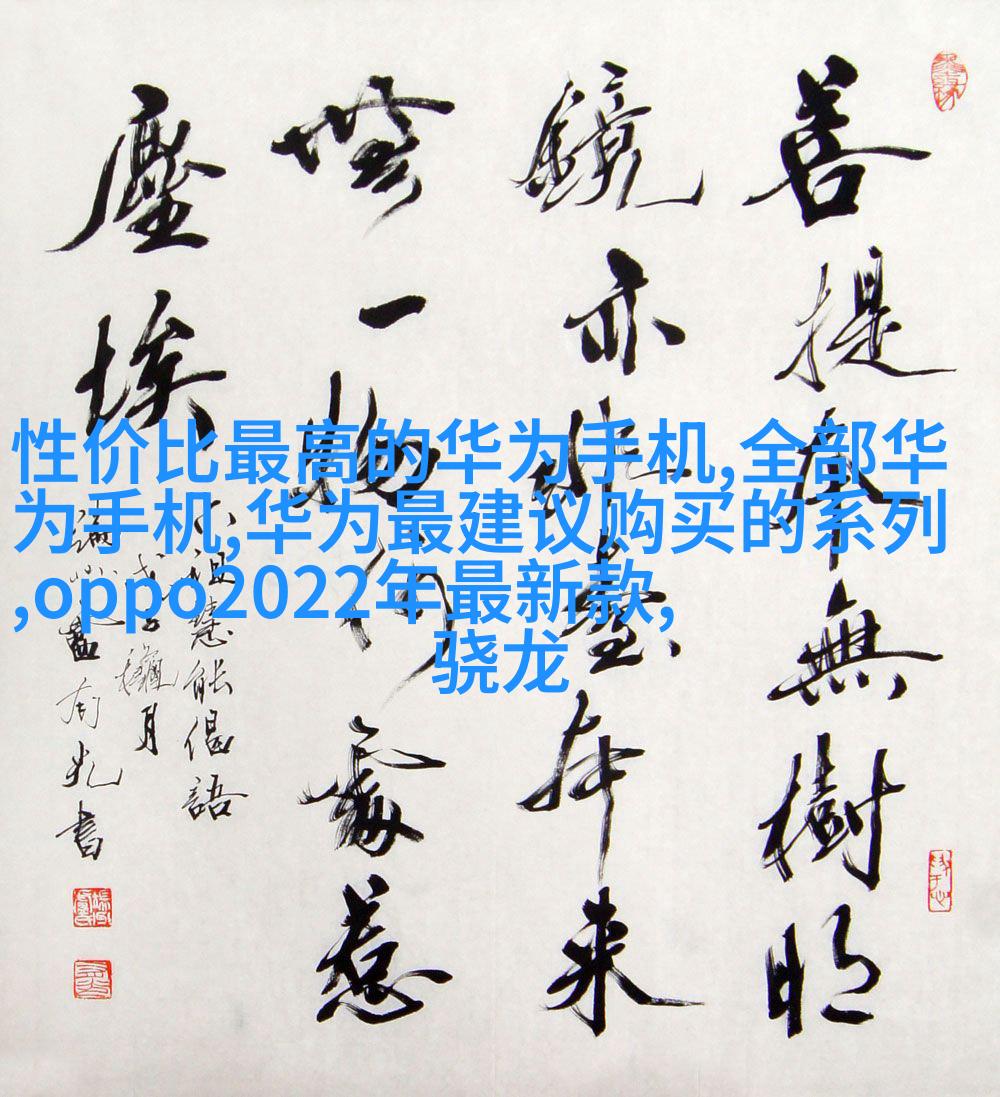 菩提本無樹明
鏡亦非臺本来
無一物何處惹
塵埃
祖慧能偈語
月
書
性价比最高的华为手机,全部华
为手机,华为最建议购买的系列
,oppo2022年最新款,
骁龙